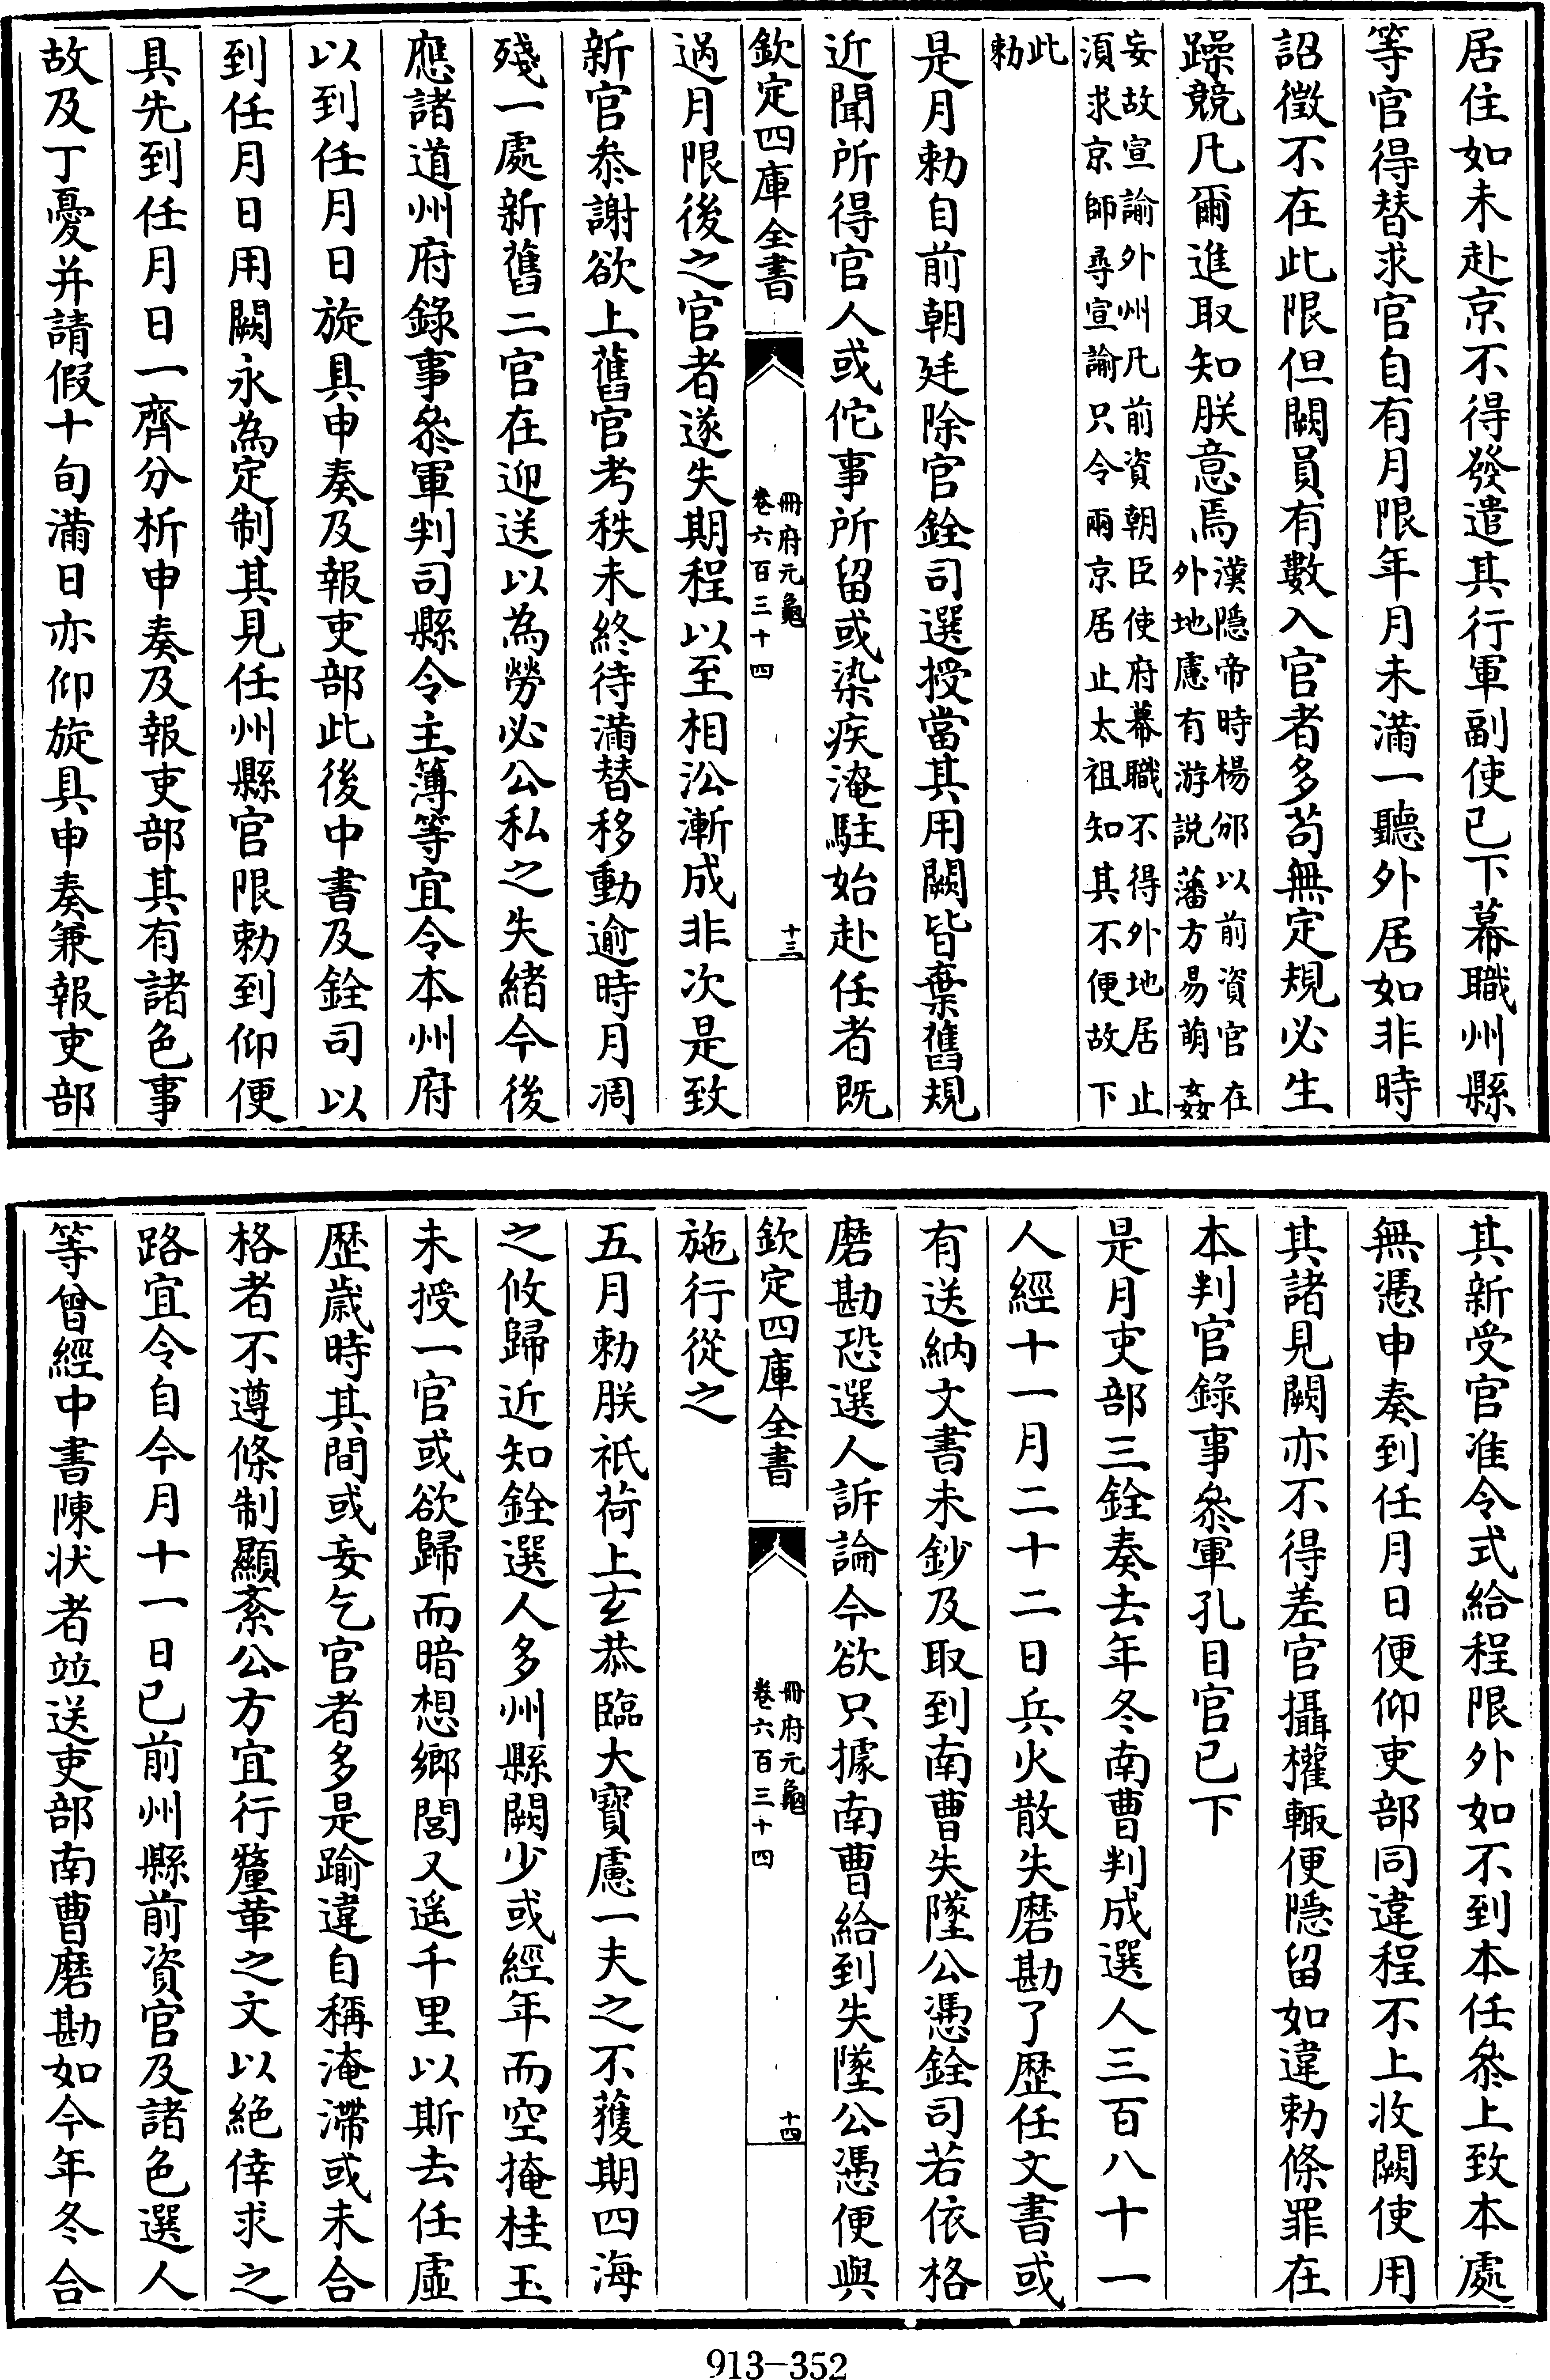 居住如未赴京不得發遣其行軍副使已下幕職州縣
等官得替求官自有月限年月未滿一聽外居如非時
詔徵不在此限但闕員有數入官者多苟無定規必生
躁競凡爾進取知朕意焉漢隱帝時楊邠以前資官在外地慮有游説藩方易萌姦
妄故宣諭外州凡前資朝臣使府幕職不得外地居止
湏求京師尋宣諭只令兩京居止太祖知其不便故下
此勅
是月勅自前朝廷除官銓司選授當其用闕皆棄舊規
近聞所得官人或佗事所留或染疾淹駐始赴任者既
欽定四庫全書
冊府元龜
卷六百三十四
十三
過月限後之官者遂失期程以至相沿漸成非次是致
新官叅謝欲上舊官考秩未終待滿替移動逾時月凋
殘一處新舊二官在迎送以為勞必公私之失緒今後
應諸道州府錄事叅軍判司縣令主簿等宜令本州府
以到任月日旋具申奏及報吏部此後中書及銓司以
到任月日用闕永為定制其見任州縣官限勅到仰便
具先到任月日一齊分析申奏及報吏部其有諸色事
故及丁憂并請假十旬滿日亦仰旋具申奏兼報吏部
其新受官准令式給程限外如不到本任叅上致本處
無憑申奏到任月日便仰吏部同違程不上收闕使用
其諸見闕亦不得差官攝權輙便隱留如違勅條罪在
本判官錄事叅軍孔目官已下
是月吏部三銓奏去年冬南曹判成選人三百八十一
人經十一月二十二日兵火散失磨勘了歴任文書或
有送納文書未鈔及取到南曹失墜公憑銓司若依格
磨勘恐選人訴論今欲只據南曹給到失墜公憑便與
欽定四庫全書
冊府元龜
卷六百三十四
十四
施行從之
五月勅朕祇荷上玄恭臨大寳慮一夫之不獲期四海
之攸歸近知銓選人多州縣闕少或經年而空掩桂玉
未授一官或欲歸而暗想鄉閭又遥千里以斯去任虛
歴歲時其間或妄乞官者多是踰違自稱淹滯或未合
格者不遵條制顯紊公方宜行釐革之文以絶倖求之
路宜令自今月十一日已前州縣前資官及諸色選人
等曾經中書陳状者竝送吏部南曹磨勘如今年冬合
913-352